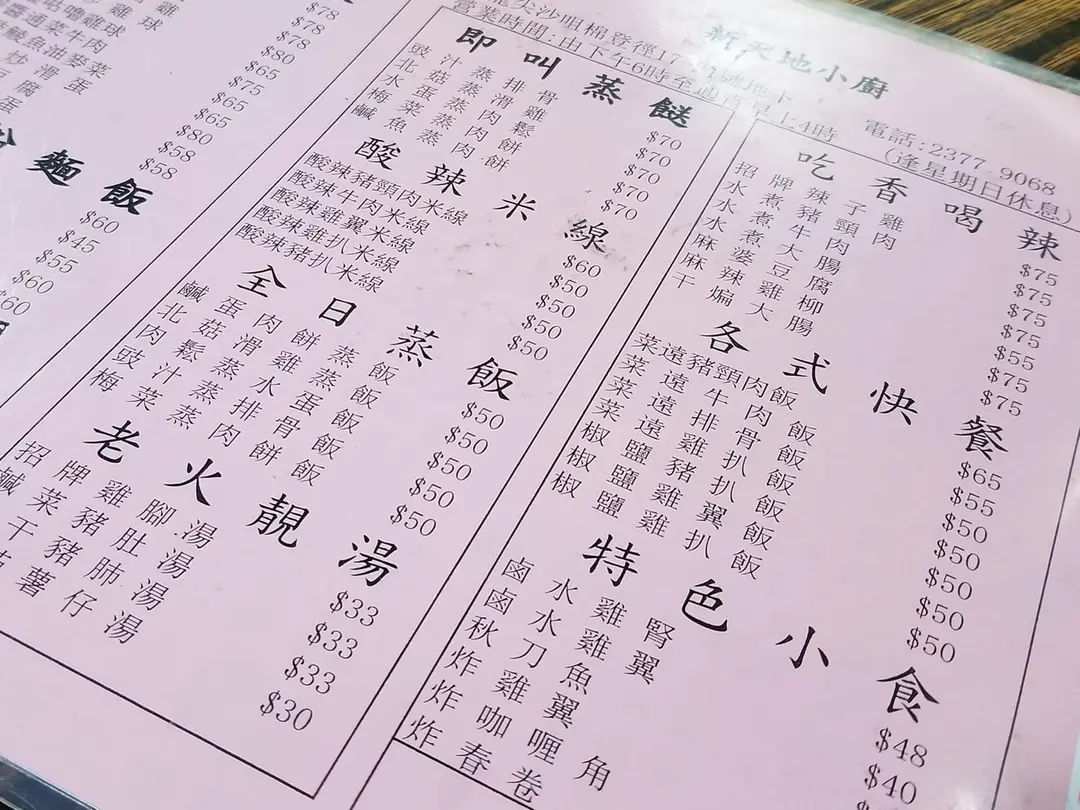 雞
雞球
咕嚕雞球
菜牛肉
油麥菜
炒滑蛋
$78
$78
$78
$80
$65
$75
$65
$65
$80
$58
$58
麵飯
$60
$45
$55
$60
$60
新天地小廚
尖沙咀棉登徑17
號地下
電話:2377 9068
營業時間:由下午6時至通宵早上4時 (逢星期日休息)
即叫蒸餸
豉汁蒸排骨 $70
北菇蒸滑雞 $70
水蛋蒸肉鬆 $70
梅菜蒸肉餅 $70
鹹魚蒸肉餅 $70
酸辣米線
酸辣豬頸肉米線 $60
酸辣牛肉米線 $50
酸辣雞翼米線 $50
酸辣雞扒米線 $50
酸辣豬扒米線 $50
全日蒸飯
鹹蛋肉餅蒸飯 $50
北菇滑雞蒸飯 $50
肉鬆蒸水蛋飯 $50
豉汁蒸排骨飯 $50
梅菜蒸肉餅飯 $50
老火靚湯
招牌雞腳湯 $33
鹹菜豬肚湯 $33
干豬肺湯 $33
薯仔湯 $30
吃香喝辣
招牌辣子雞 $75
水煮豬頸肉 $75
水煮牛肉 $75
水煮大腸 $75
麻婆豆腐 $55
麻辣雞柳 $75
干煸大腸 $75
各式快餐
菜遠豬頸肉飯 $65
菜遠牛肉飯 $55
菜遠排骨飯 $50
菜遠雞扒飯 $50
椒鹽豬扒飯 $50
椒鹽雞翼飯 $50
椒鹽雞扒飯 $50
特色小食
鹵水雞腎 $48
鹵水雞翼 $40
秋刀魚
炸雞翼
炸咖喱角
炸春卷